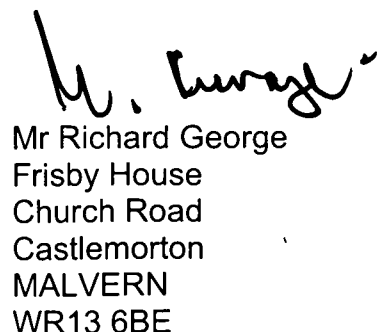 Mr Richard George
Frisby House
Church Road
Castlemorton
MALVERN
WR13 6BE